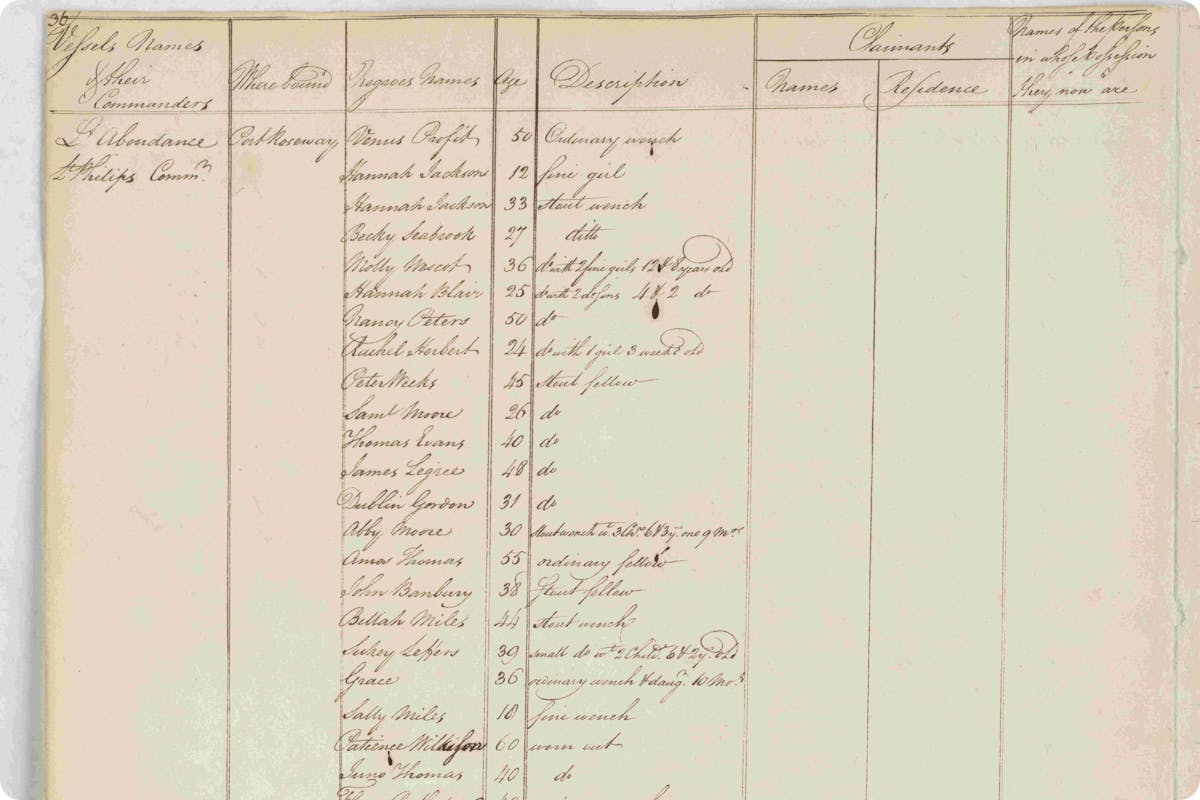 36
Vessels Names
& their
Commanders
Where bound
Negroes Names
Age
Description
Claimants
Names
Residence
Names of the Persons
in whose Possession
they now are
L'Abondance Port Roseway Venus Profit 50 Ordinary wench
Lt Philips Commr Hannah Jackson 12 fine girl
Hannah Jackson 33 stout wench
Becky Seabrook 27 ditto
Molly Wescot 36 do with 2 fine girls 12 & 8 years old
Hannah Blair 25 do with 2 do sons 4 & 2 do
Nancy Peters 50 do
Rachel Herbert 24 do with 1 girl 3 weeks old
Peter Weeks 45 stout fellow
Saml Moore 26 do
Thomas Evans 40 do
James Legree 48 do
Dublin Gordon 31 do
Abby Moore 30 stout wench wt 3 Ch. 6 & 3 y. one 9 Mos
Amos Thomas 55 ordinary fellow
John Banbury 38 Stout fellow
Bellah Miles 44 stout wench
Sukey Leffers 39 small do wt 2 Child. 6 & 2 y. old
Grace 36 ordinary wench & daugr 10 Mos
Sally Miles 18 fine wench
Patience Wilkison 60 worn out
Juno Thomas 40 do